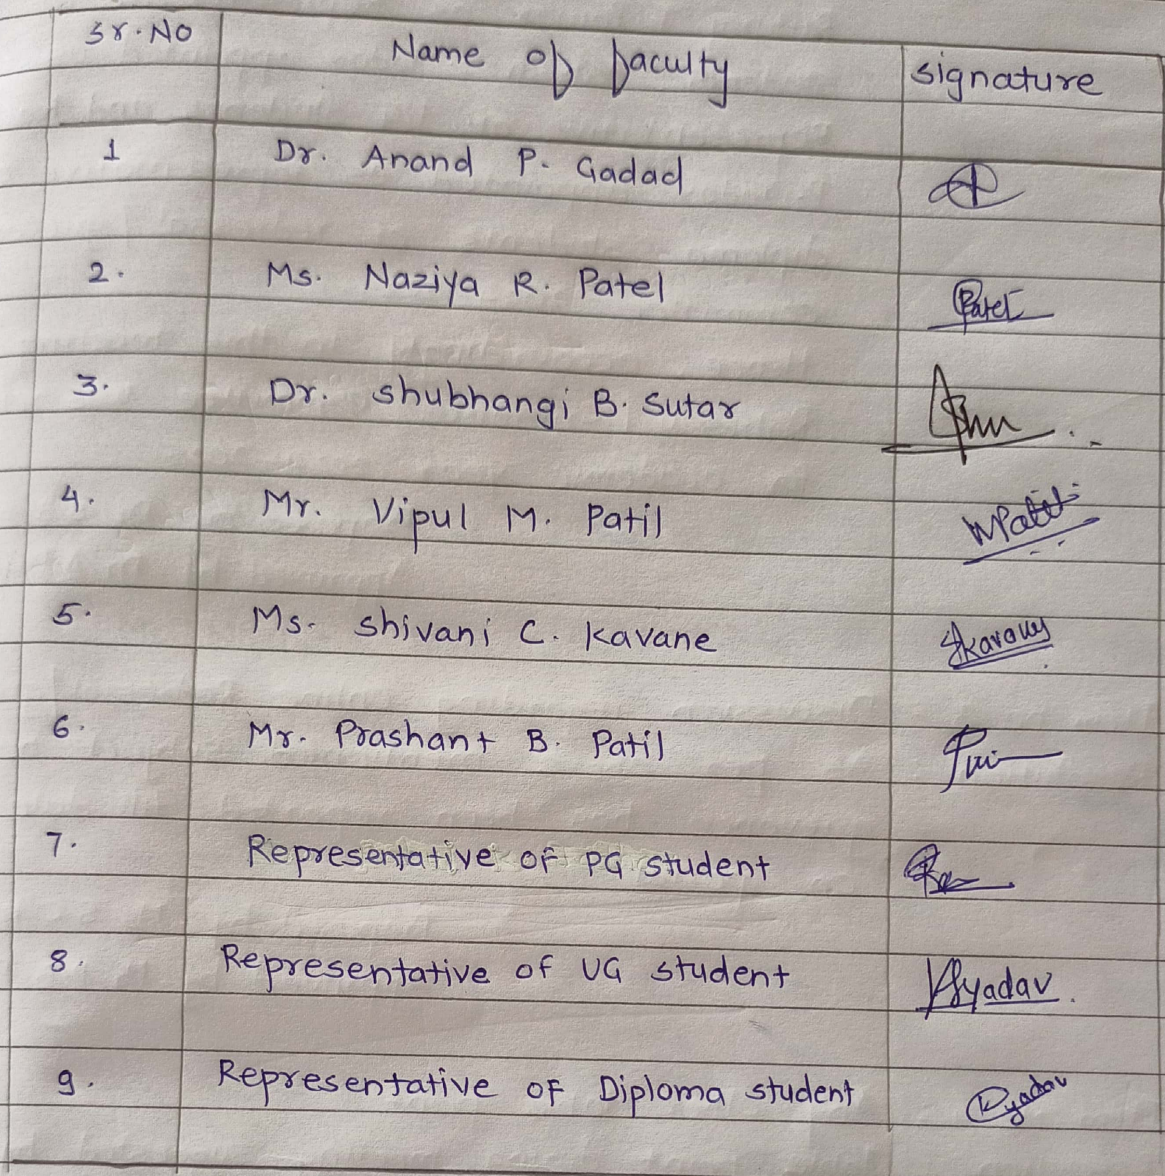 Sr. No Name of faculty signature
1 Dr. Anand P. Gadad
2. Ms. Naziya R. Patel Patel
3. Dr. shubhangi B. Sutar
4. Mr. Vipul M. Patil VPatil
5. Ms. shivani C. Kavane
6. Mr. Prashant B. Patil
7. Representative of PG student
8. Representative of UG student yadav
9. Representative of Diploma student yadav